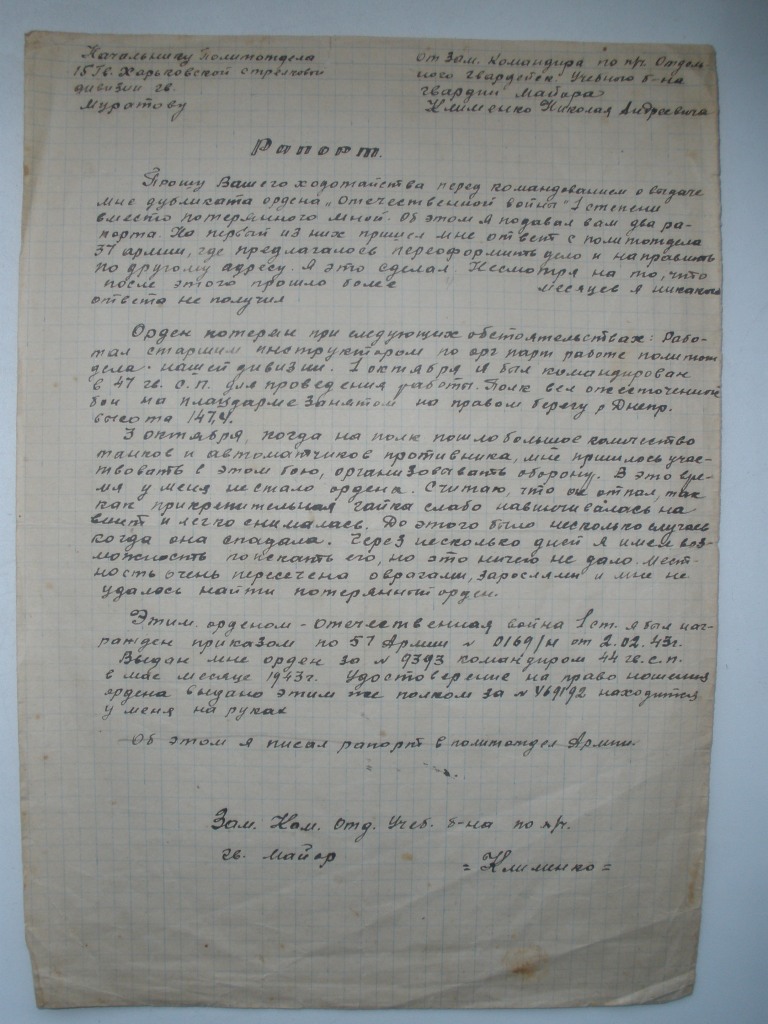 Начальнику Политотдела
15 Гв. Харьковской стрелковой
дивизии гв.
Муратову
От Зам. Командира по п/ч Отдель
ного гвардейск. Учебного б-на
гвардии Майора
Клименко Николая Андреевича
Рапорт.
Прошу Вашего ходотайства перед командованием о выдаче
мне дубликата ордена „Отечественной война" 1 степени
вместо потерянного мной. Об этом я подавал вам два ра-
порта. На первый из них пришел мне ответ с политотдела
37 армии, где предлагалось переоформить дело и направить
по другому адресу. Я это сделал. Несмотря на то, что
после этого прошло более месяцев я никакого
ответа не получил
Орден потерян при следующих обстоятельствах: Рабо-
тал старшим инструктором по орг парт работе политот
дела нашей дивизии. 1 октября я был командирован
в 47 гв. с.п. для проведения работы. Полк вел ожесточенный
бои на плацдарме занятом на правом берегу р Днепр.
высота 147,4.
3 октября, когда на полк пошло большое количество
танков и автоматчиков противника, мне пришлось учас-
твовать с этом бою, организовывать оборону. В это вре-
мя у меня не стало ордена. Считаю, что он отпал, так
как прикрепительная гайка слабо навинчивалась на
винт и легко снималась. До этого было несколько случаев
когда она спадала. Через несколько дней я имел воз-
можность поискать его, но это ничего не дало. Мест-
ность очень пересечена оврагами, зарослями и мне не
удалось найти потерянный орден.
Этим орденом - отечественная война 1 ст. я был наг-
ражден приказом по 57 Армии № 0169/н от 2.02.43г.
Выдан мне орден за № 9393 командиром 44 гв. с.п.
в мае месяце 1943г. Удостоверение на право ношения
ордена выдано этим же полком за № находится
у меня на руках
Об этом я писал рапорт в политотдел Армии.
Зам. Ком. Отд. Учеб. б-на по п/ч.
гв. майор = Клименко =